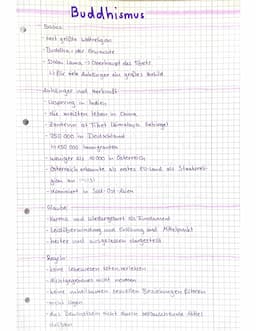 Buddhismus
Basics
- viert größte Weltreligion
- Buddha = der Erwachte
- Dalai Lama → Oberhaupt des Tibets
↳ Für viele Anhänger ein großes Vorbild
Anhänger und Herkunft
- Ursprung in Indien
- die meisten leben in China
- Zentrum ist Tibet (Himalaya Gebirge)
- 250 000 in Deutschland
↳ 130 000 Immigranten
- weniger als 10 000 in Österreich
- Österreich erkannte als erstes EU-Land als Staatsreligion an
- dominiert in Süd-Ost-Asien
Glaube
- Karma und Wiedergeburt als Fundament
- Leidüberwindung und Erlösung sind Mittelpunkt
- heiter und ausgelassen dargestellt
Regeln
- keine Lebewesen töten, verletzen
- nichtgegebenes nicht nehmen
- keine unheilsamen sexuellen Beziehungen führen
- nicht lügen
- das Bewusstsein nicht durch berauschende Mittel trüben